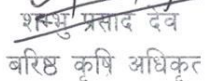 शम्भु प्रसाद देव
बरिष्ठ कृषि अधिकृत